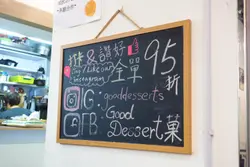 推 & 讚好
Tag / Like our
Instagram
全單
95
折
IG: gooddesserts
FB: Good
Dessert菓